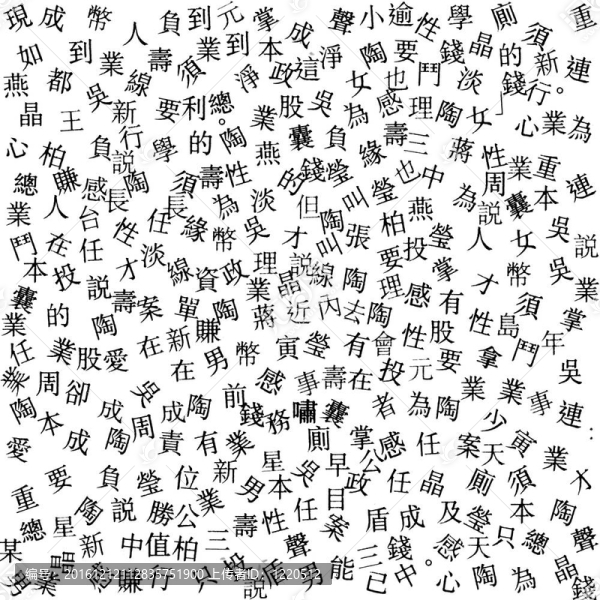 現成 幣 人 負到元 掌 聲小逾性學 廁 重
如 到業 壽 須業到本 成 淨 陶要錢晶的 須 連
燕 都 線 淨 政 這 女也鬥 淡 錢 新。
晶 王 吳新 要利總。 股吳為感理陶女 行 為
心 柏 負行 學 的陶 業囊負緣壽三 蔣 心業
總 賺感說陶 須壽性 燕 的錢瑩 也中 性 業重
業 人 台 長 任 長緣為 淡 但陶叫瑩柏燕 為周說囊本連
鬥 在任 性淡 幣 吳 才叫張 投瑩 人 女 吳說
本投 才 線資政 理晶說線陶 要 掌 才幣 吳
囊 的 說壽案 單 陶 業 理感有 須 業
業 陶 新賺 蔣近內去陶 性股 性島 掌
任 業股愛 在 男 幣 寅瑩 有會性要 拿鬥年
業周卻 吳 在 感 事壽在投元業業 吳
陶 成 成陶 前錢務嘯囊 者為陶 少 事連
愛 本成陶周責有業 廁 掌感任 案天寅 業
重 要 負瑩位 新 星 吳早公任晶 廁須
總 星陶說勝公業 男本任目政 及瑩本 陶
某 新 中值柏三 壽性 案盾成 天只總聲
晶 感賺行只投 盾聲男能三錢中。感心陶為晶
编号：20161212112835751900 上传者ID：1220512